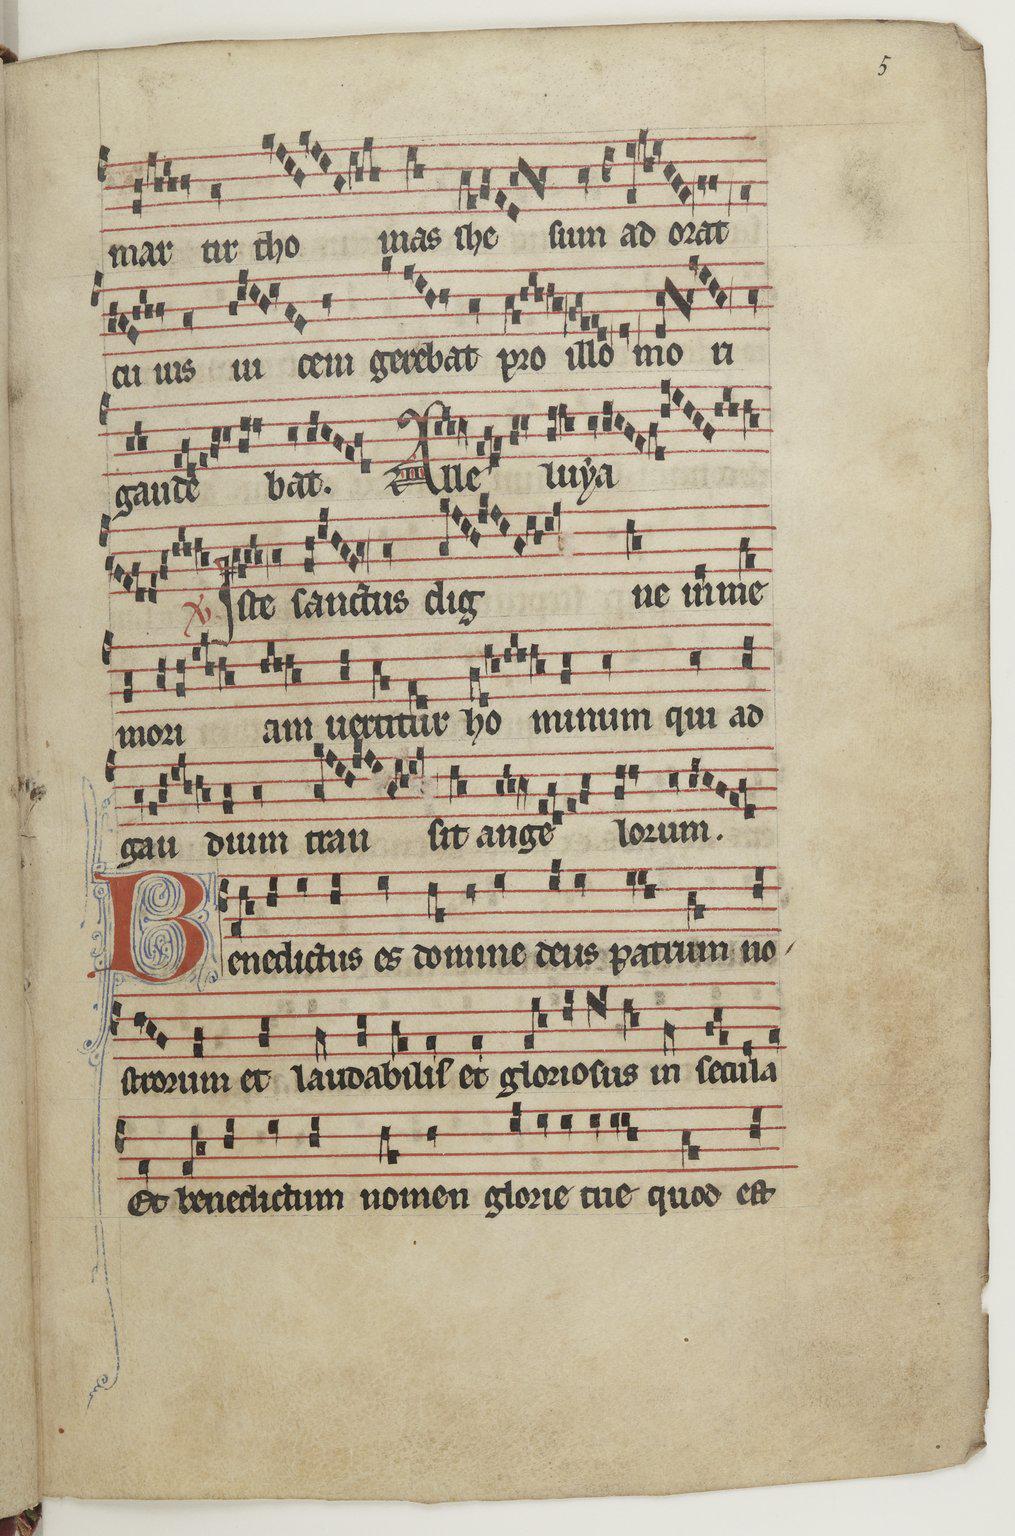 5
mar tir tho mas ihe sum ad orat
cu ius ui cem gerebat pro illo mo ri
gaude bat. Alle luya
℣ Iste sanctus dig ne in me
mori am uertitur ho minum qui ad
gau dium tran sit ange lorum.
Benedictus es domine deus patrum no
strorum et laudabilis et gloriosus in secula
Et benedictum nomen glorie tue quod est